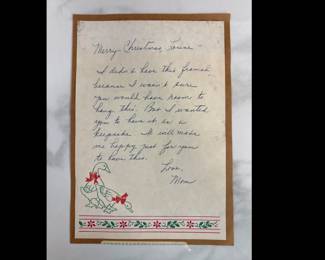 Merry Christmas, Janine -
I didn't have this framed
because I wasn't sure
you would have room to
hang this. But I wanted
you to have it as a
keepsake. It will make
me happy just for you
to have this.
Love,
Mom